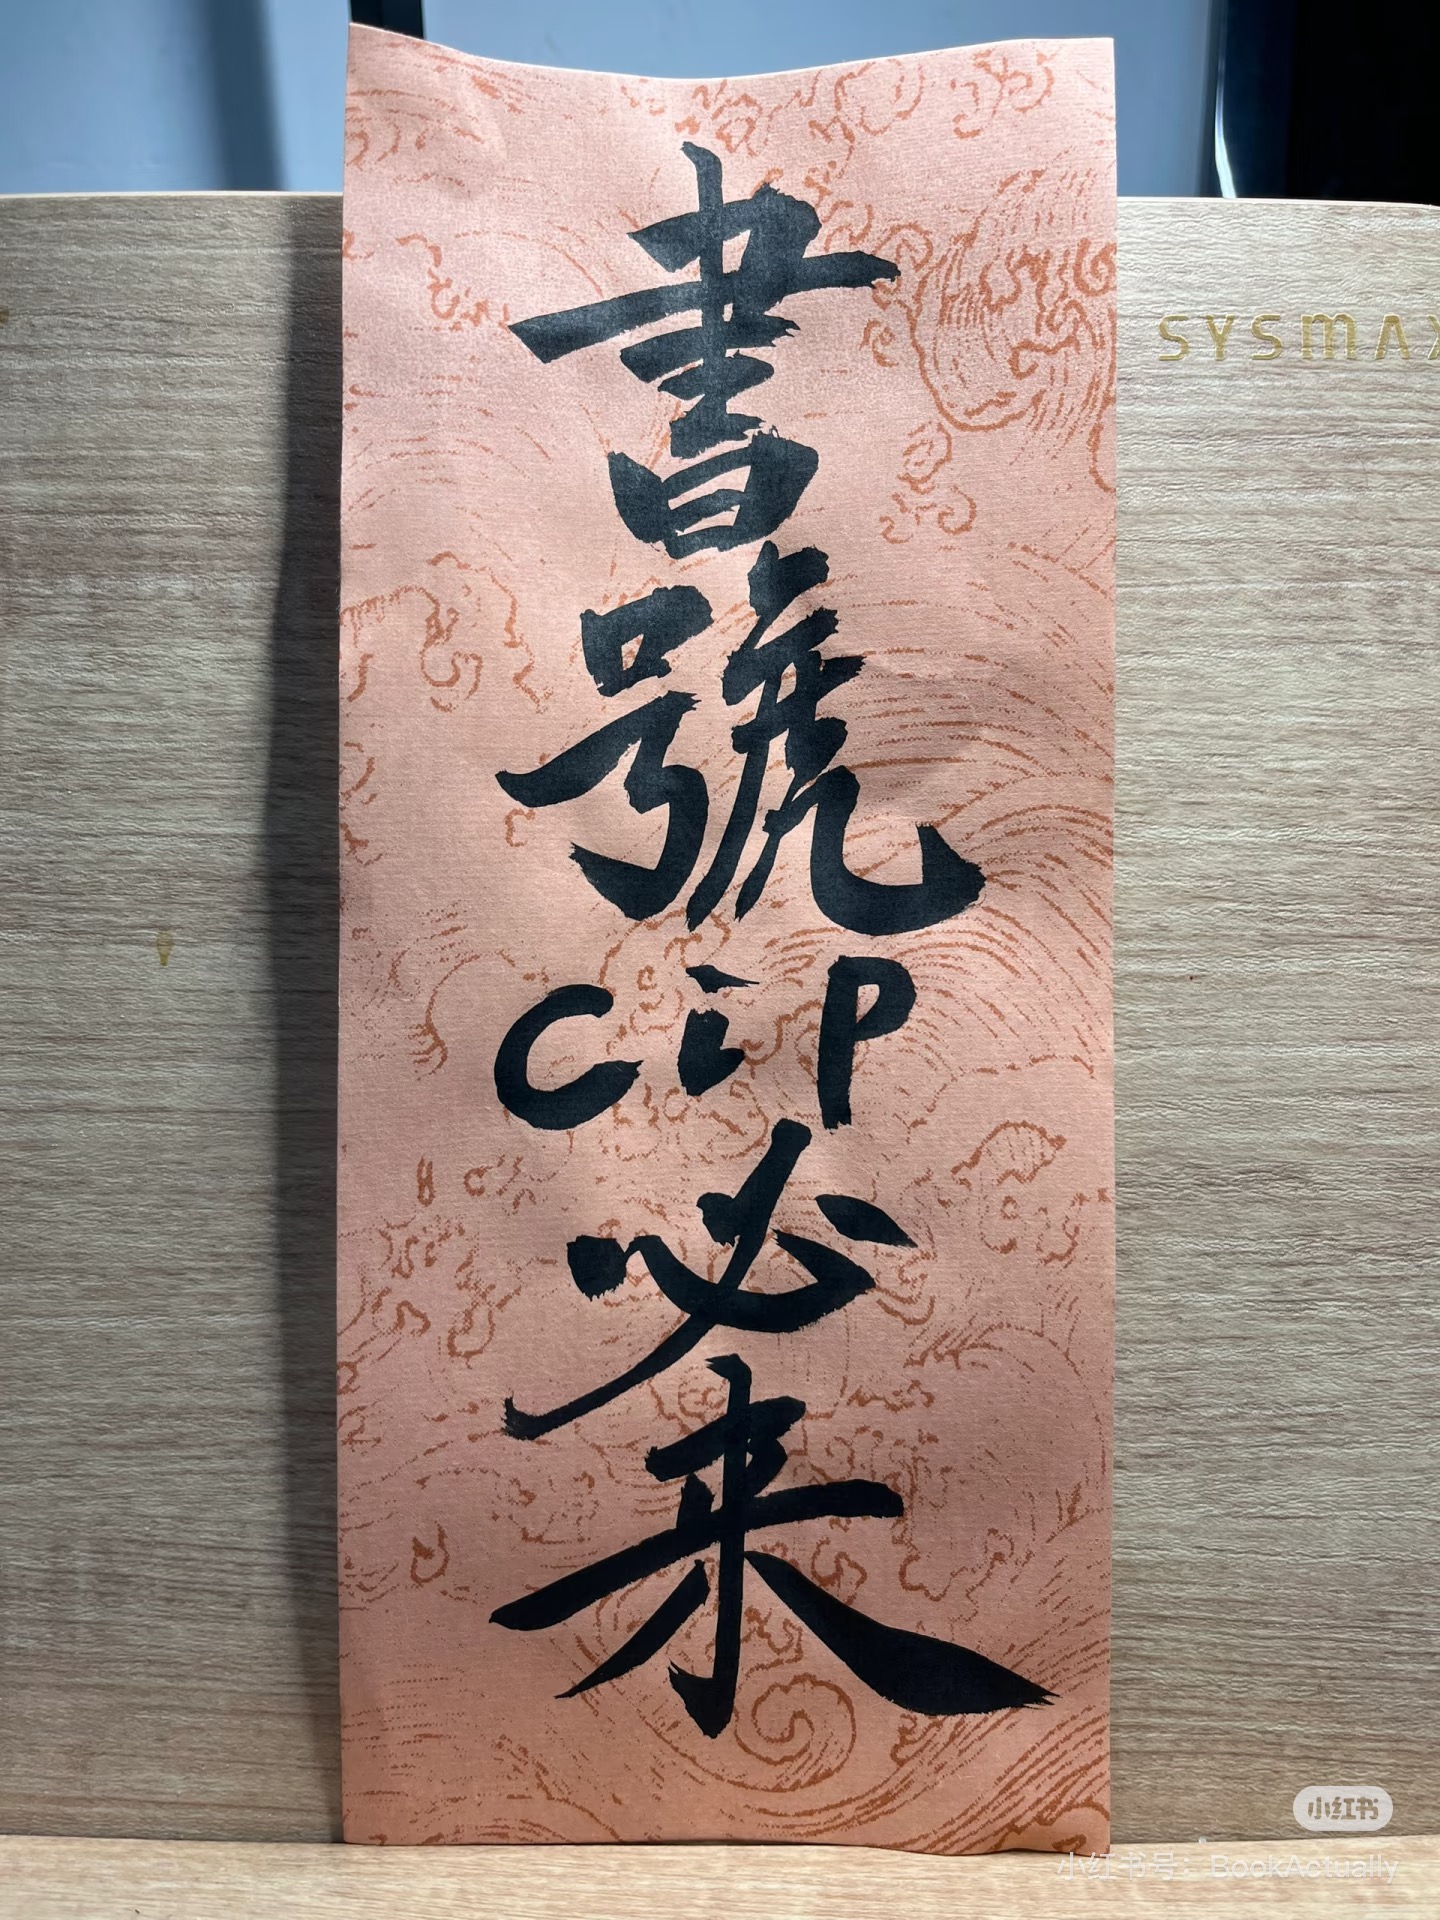 書號CIP必来
SYSMAX
小红书
小红书号：BookActually